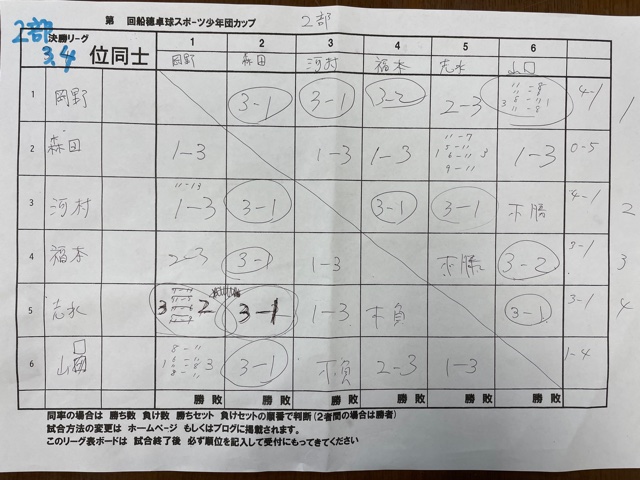 第 回船穂卓球スポーツ少年団カップ 2部
2部 決勝リーグ
3,4 位同士
1 2 3 4 5 6
岡野 森田 河村 福本 志水 山口
1 岡野 3-1 3-1 3-2 2-3 3 11-8 11-8 8-11 11-8 1 4-1 1
2 森田 1-3 1-3 1-3 1 11-7 5-11 6-11 9-11 3 1-3 0-5
3 河村 11-13 1-3 3-1 3-1 3-1 不勝 4-1 2
4 福本 2-3 3-1 1-3 不勝 3-2 3-1 3
5 志水 3 2 3-1 1-3 不負 3-1 3-1 4
6 山口 1 8-11 8-11 3 3-1 不負 2-3 1-3 1-4
勝 敗 勝 敗 勝 敗 勝 敗 勝 敗 勝 敗
同率の場合は 勝ち数 負け数 勝ちセット 負けセットの順番で判断(2者間の場合は勝者)
試合方法の変更は ホームページ もしくはブログに掲載されます。
このリーグ表ボードは 試合終了後 必ず順位を記入して受付にもってきてください